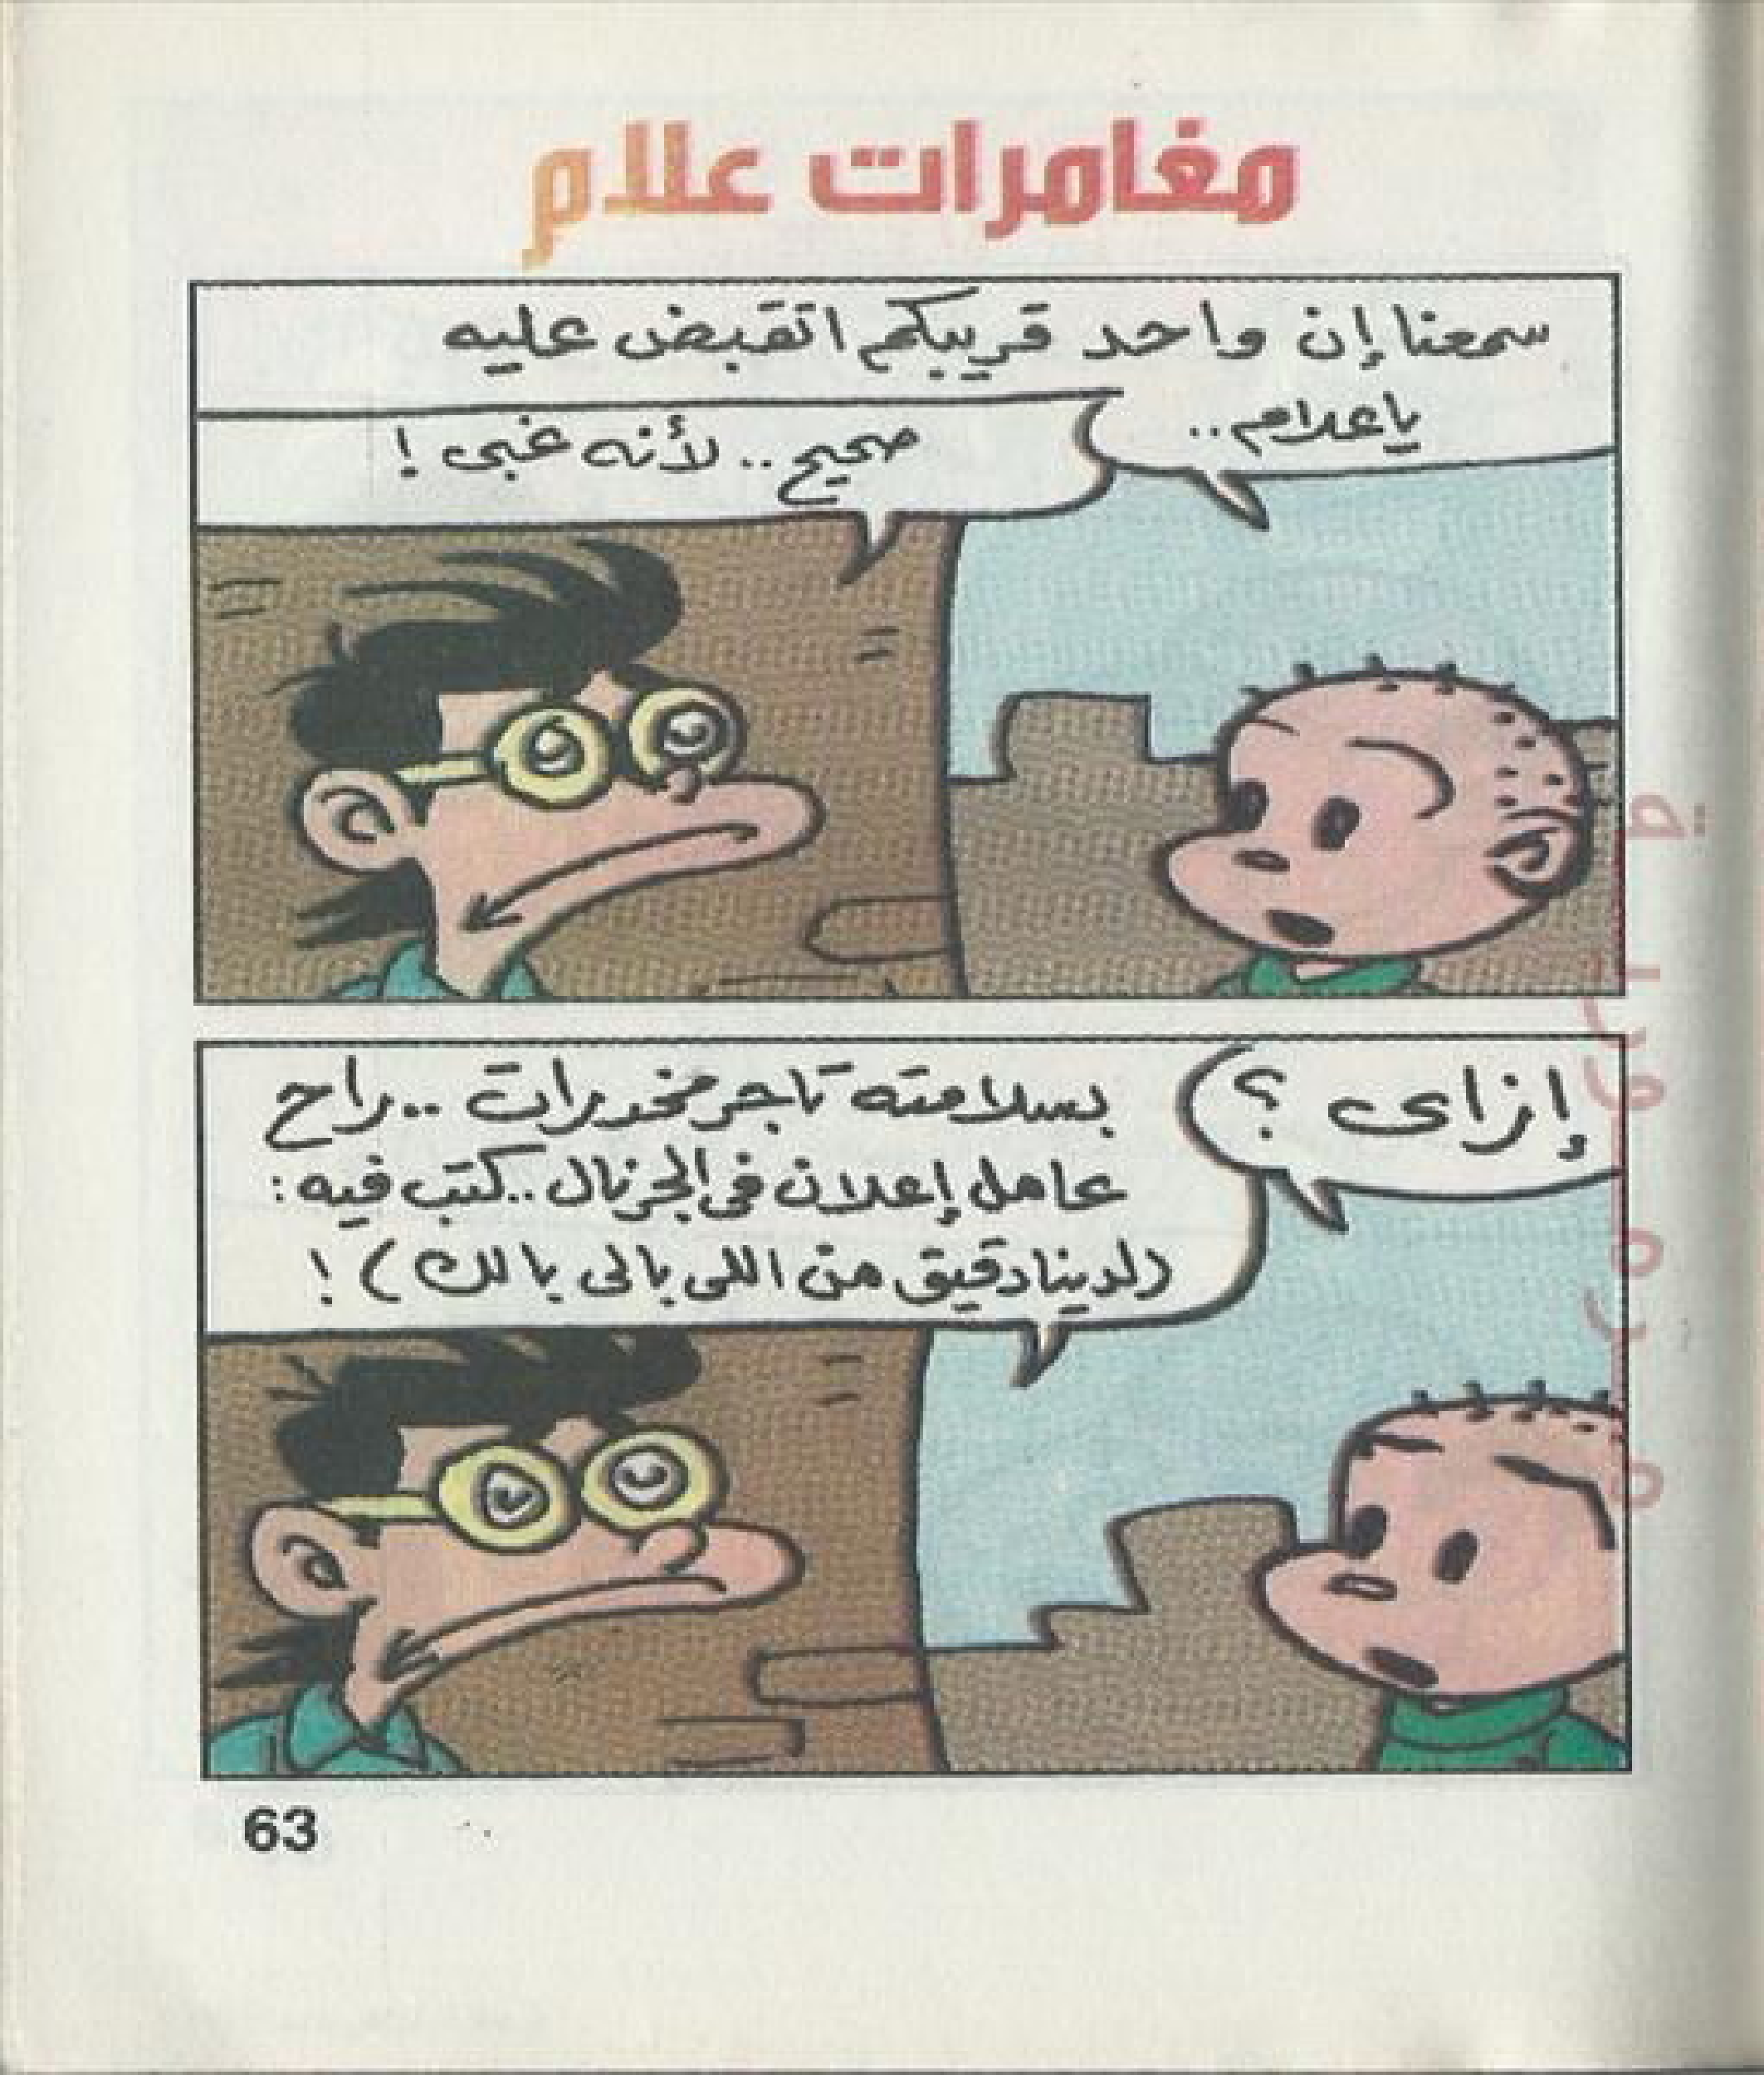 مغامرات علام
سمعنا إن واحد قريبكم اتقبض عليه
يا علام..
صحيح.. لأنه غبى !
إزاى ؟
بسلامته تاجر مخدرات.. راح
عامل إعلان فى الجرنال.. كتب فيه :
(لدينا دقيق من اللى بالى بالك) !
63